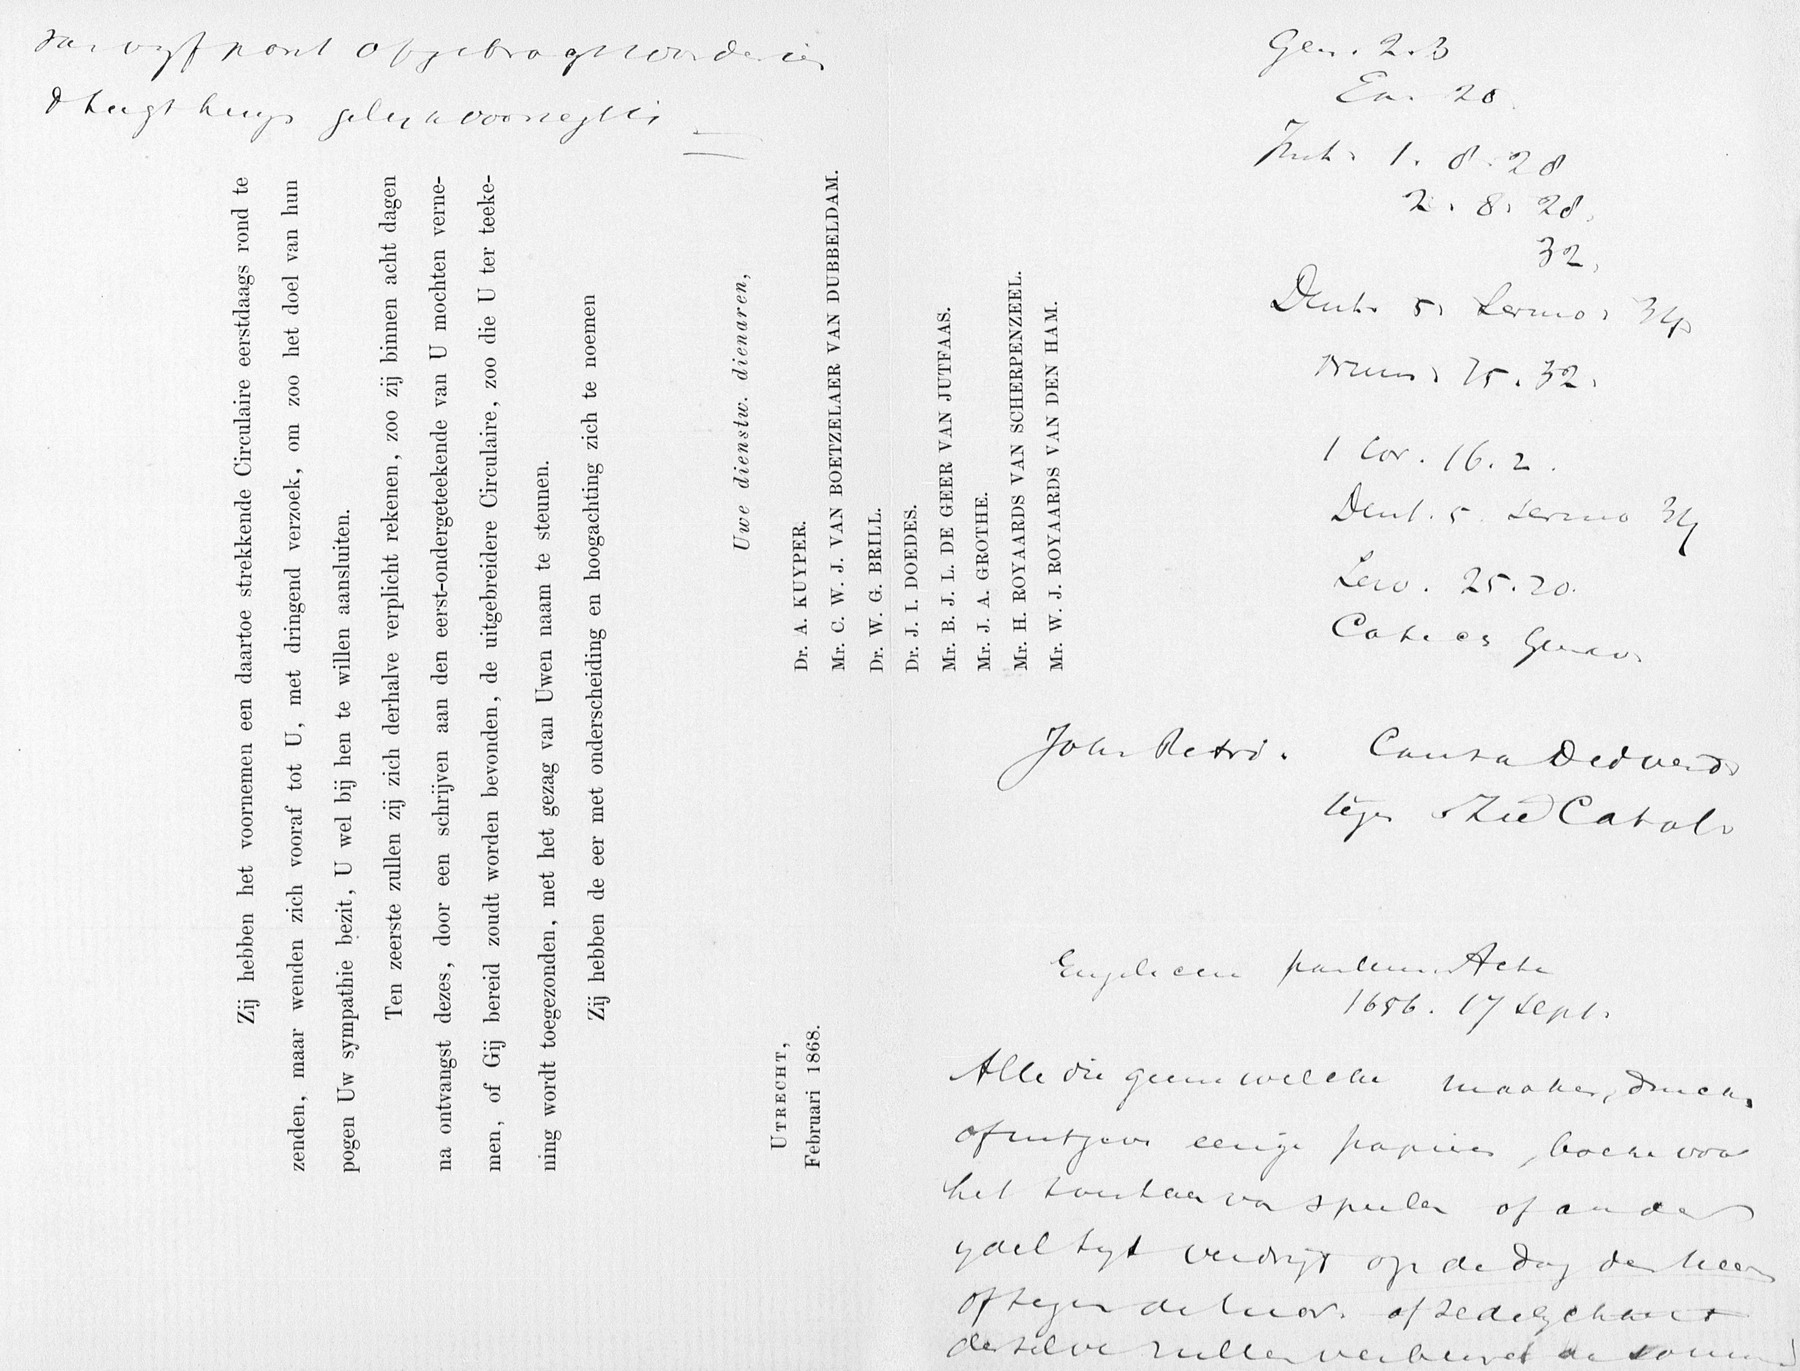 van vyf pont opgebragt worden
gelyk voorsegt is
Zij hebben het voornemen een daartoe strekkende Circulaire eerstdaags rond te
zenden, maar wenden zich vooraf tot U, met dringend verzoek, om zoo het doel van hun
pogen Uw sympathie bezit, U wel bij hen te willen aansluiten.
Ten zeerste zullen zij zich derhalve verplicht rekenen, zoo zij binnen acht dagen
na ontvangst dezes, door een schrijven aan den eerst-ondergeteekende van U mochten verne-
men, of Gij bereid zoudt worden bevonden, de uitgebreidere Circulaire, zoo die U ter teeke-
ning wordt toegezonden, met het gezag van Uwen naam te steunen.
Zij hebben de eer met onderscheiding en hoogachting zich te noemen
Uwe dienstw. dienaren,
UTRECHT,
Februari 1868.
Dr. A. KUYPER.
Mr. C. W. J. VAN BOETZELAER VAN DUBBELDAM.
Dr. W. G. BRILL.
Dr. J. I. DOEDES.
Mr. B. J. L. DE GEER VAN JUTFAAS.
Mr. J. A. GROTHE.
Mr. H. ROYAARDS VAN SCHERPENZEEL.
Mr. W. J. ROYAARDS VAN DEN HAM.
Gen. 2.3
Ex. 20.
1. 8. 28
2. 8. 28.
32.
Deut. 5. Sermo. 34
Num. 15. 32.
1 Cor. 16. 2.
Deut. 5. Sermo 34
Lev. 25. 20.
Cateches Genev.
Joh. Petri. Causa
tegen
parlem. Acte
1656. 17 Sept.
Alle die geene welcke maaken, drucken
of uytgeven eenige papieren, boeken voor
het van speelen of ander
ydel tyt verdryf op de dag des heeren
of tegen de
deselve zullen verbeurt de somme